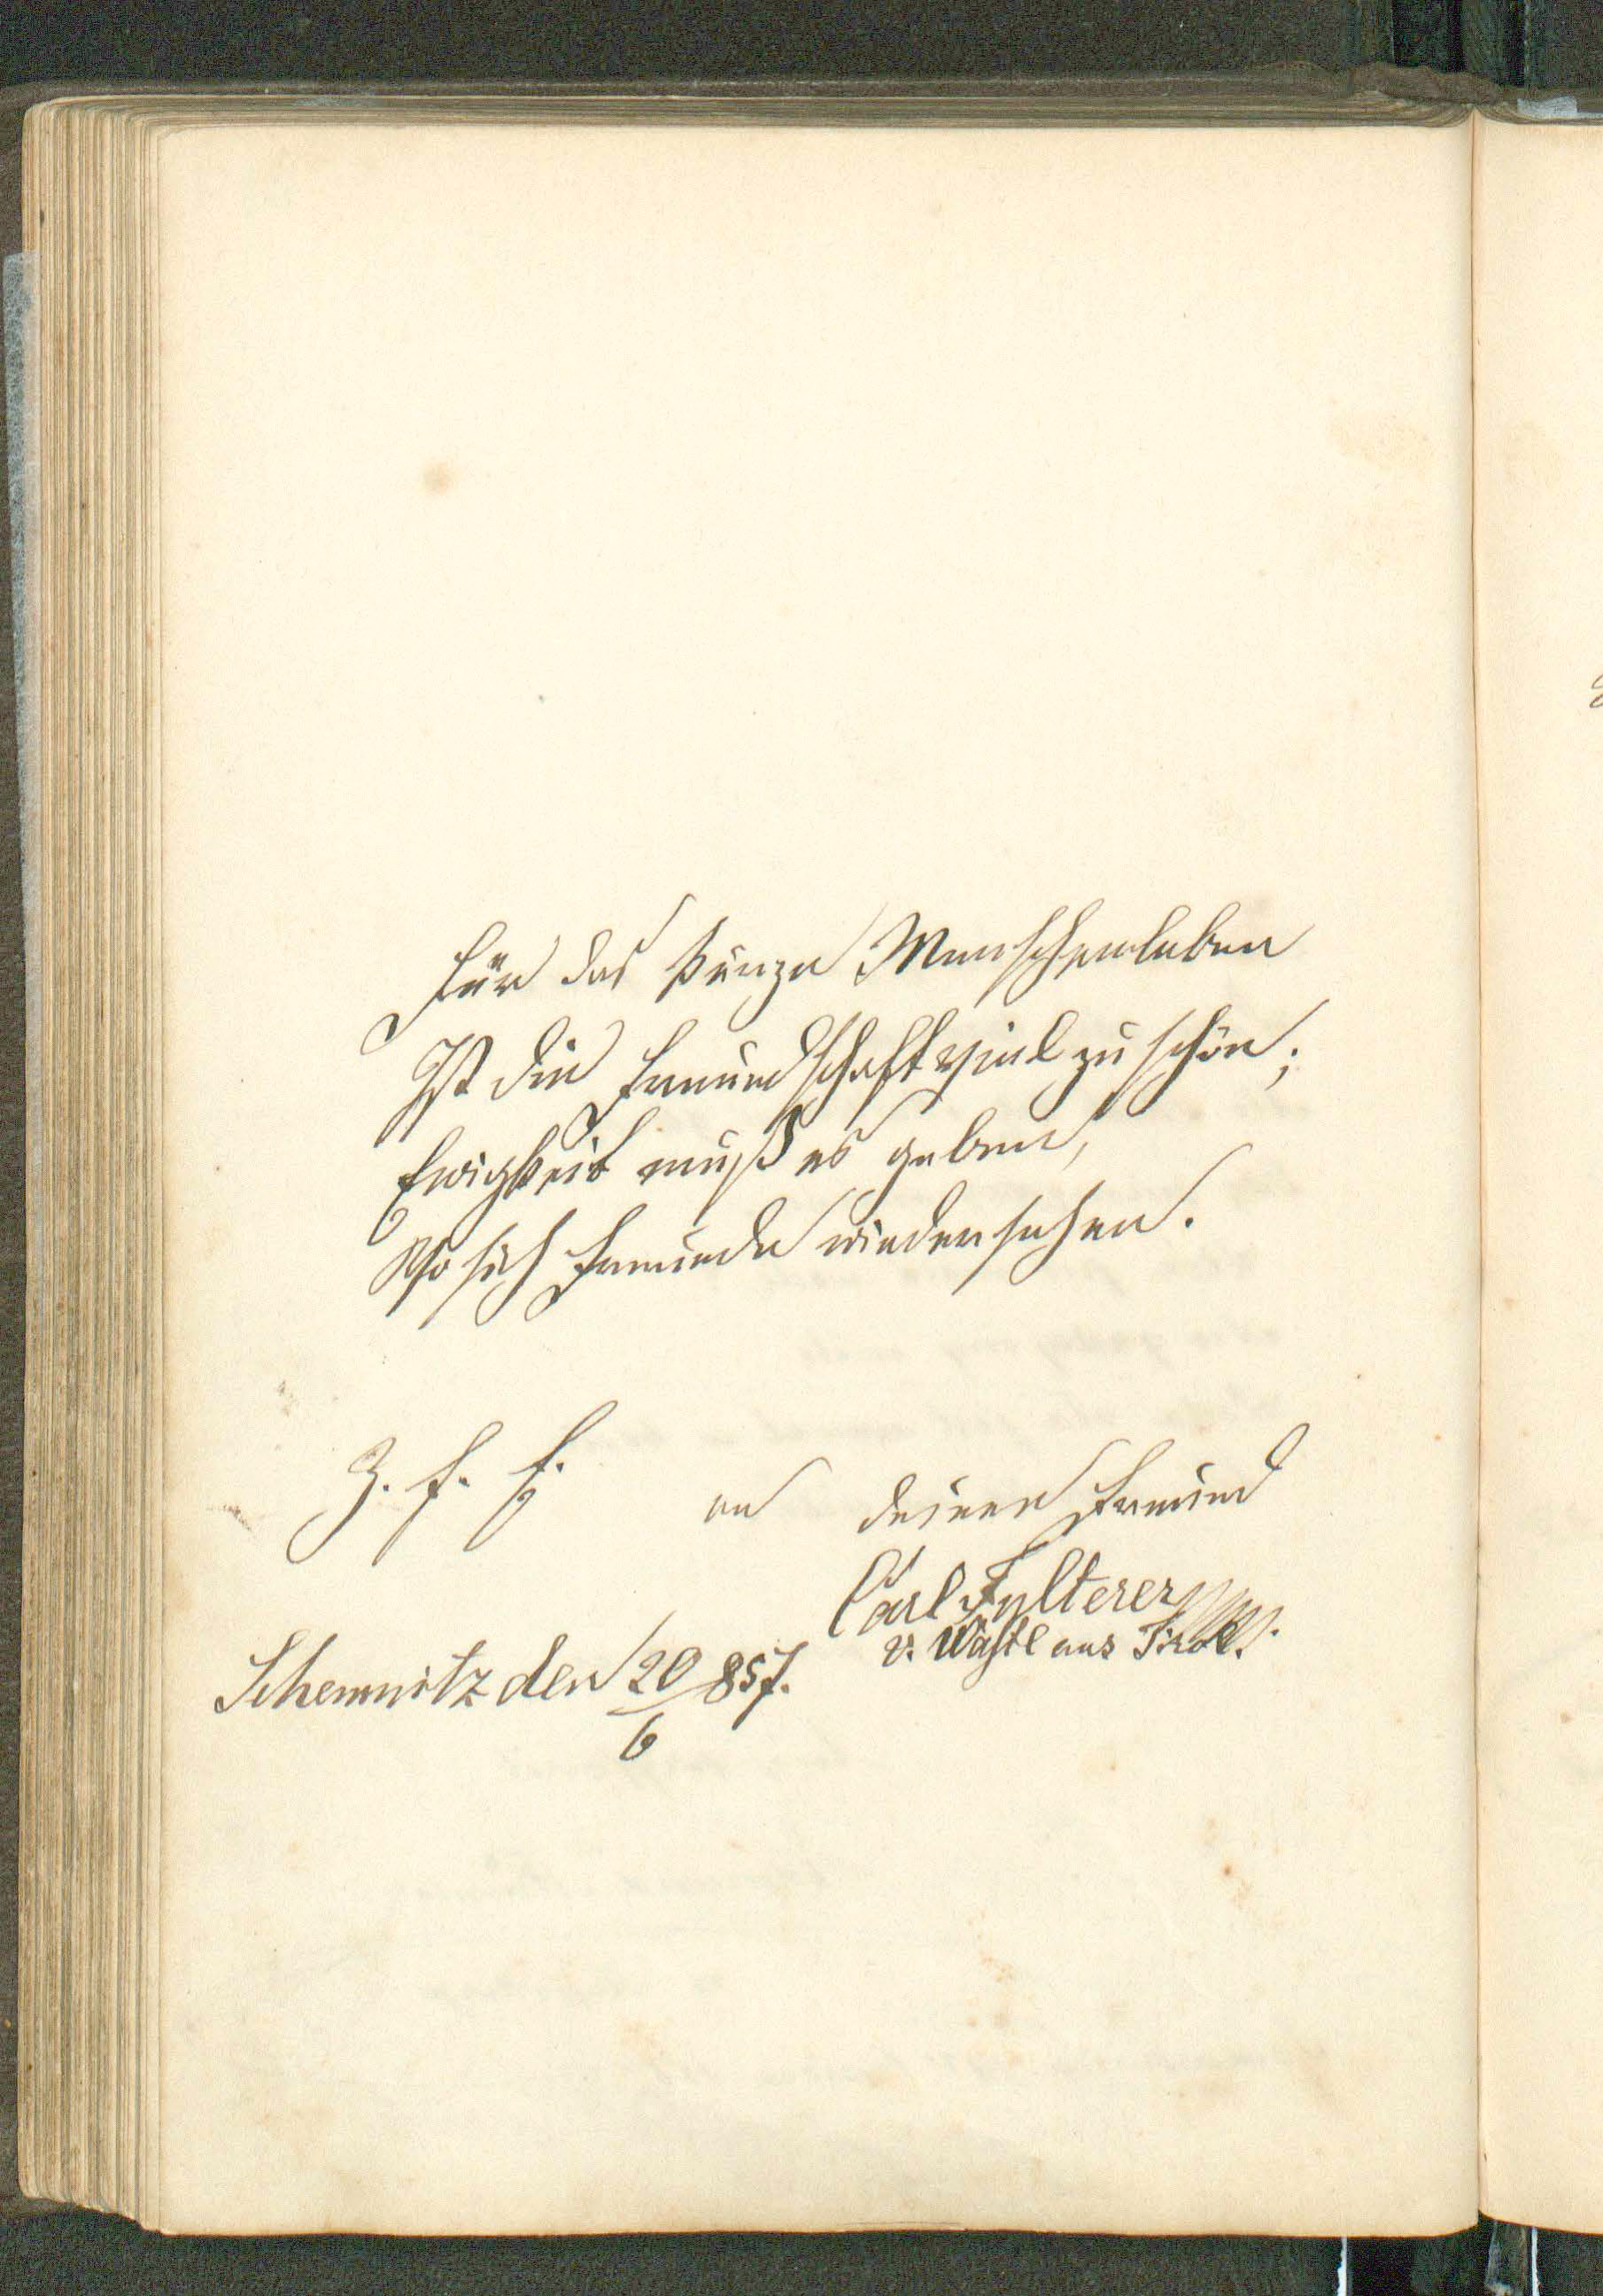 Für das kurze Menschenleben
Ist die Freundschaft viel zu schön;
Ewigkeit muß es geben,
Wo sich Freunde wiedersehen.
Z. f. E. an deinen Freund
Carl
v. Wastl aus Tirol.
Schemnitz den 20/6 857.